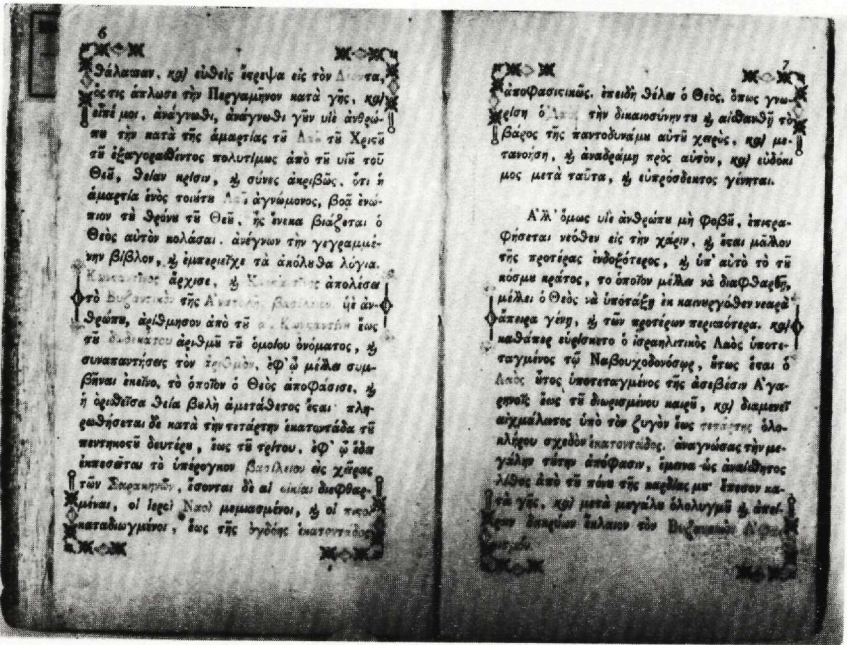 6
θάλασσαν. καὶ εὐθεὶς ἔτρεψα εἰς τὸν Λέοντα,
ὅςτις ἅπλωσε τὴν Περγαμηνὸν κατὰ γῆς, καὶ
εἰπέ μοι, ἀνάγνωθι, ἀνάγνωθι γῦν υἱὲ ἀνθρώ-
πυ τὴν κατὰ τῆς ἁμαρτίας τῦ Λαῦ τῦ Χριςῦ
τῦ ἐξαγορασθέντος πολυτίμως ἀπὸ τῦ υἱῦ τοῦ
Θεῦ, θείαν κρίσιν, ϗ σύνες ἀκριβῶς, ὅτι ἡ
ἁμαρτία ἑνὸς τοιύτυ Λαῦ ἀγνώμονος, βοᾷ ἐνώ-
πιον τῦ θρόνυ τῦ Θεῦ, ἧς ἕνεκα βιάζεται ὁ
Θεὸς αὐτὸν κολάσαι. ἀνέγνων τὴν γεγραμμέ-
νην βίβλον, ϗ ἐμπεριεῖχε τὰ ἀκόλυθα λόγια.
Κωνςαντῖνος ἄρχισε, ϗ Κωνςαντῖνος ἀπολέσει
τὸ Βυζαντικὸν τῆς Ἀνατολῆς βασίλειον. ὑιὲ ἀν-
θρώπυ, ἀρίθμησον ἀπὸ τῦ α. Κωνςαντίνυ ἕως
τῦ δωδεκάτου ἀριθμῦ τῦ ὁμοίου ὀνόματος, ϗ
συναπαντήσεις τὸν ἀριθμὸν, ἐφ' ᾧ μέλλει συμ-
βῆναι ἐκεῖνο, τὸ ὁποῖον ὁ Θεὸς ἀποφάσισε, ϗ
ἡ ὁρισθεῖσα θεία βυλὴ ἀμετάθετος ἔςαι· πλη-
ρωθήσεται δὲ κατὰ τὴν τετάρτην ἑκατοντάδα τῦ
πεντηκοςῦ δευτέρυ, ἕως τῦ τρίτου. ἐφ' ᾧ ἔδα
ἐκπεσεῖται τὸ ὑπέρογκον βασίλειον εἰς χεῖρας
τῶν Σαρακηνῶν, ἔσονται δὲ αἱ οἰκίαι διεφθαρ-
μέναι, οἱ Ιεροὶ Ναοὶ μεμιασμένοι, ϗ οἱ πιςοὶ
καταδιωγμένοι, ἕως τῆς ὀγδόης ἑκατοντάδος
7
ἀποφασιςικῶς. ἐπειδὴ θέλει ὁ Θεὸς, ὅπως γνω-
ρίσῃ ὁ Λαὸς τὴν δικαιοσύνην τυ ϗ αἰσθανθῇ τὸ
βάρος τῆς παντοδυνάμυ αὐτῦ χειρὸς, καὶ με-
τανοήσῃ, ϗ ἀναδράμῃ πρὸς αὐτὸν, καὶ εὐδόκι-
μος μετὰ ταῦτα, ϗ εὐπρόσδεκτος γένηται.
Ἀλλ' ὅμως υἱὲ ἀνθρώπυ μὴ φοβῦ, ἐπιςρα-
φήσεται νεόθεν εἰς τὴν χάριν, ϗ ἔςαι μᾶλλον
τῆς προτέρας ἐνδοξότερος, ϗ ὑπ' αὐτὸ τὸ τῦ
κόσμυ κράτος, τὸ ὁποῖον μέλλει νὰ διαφθαρῇ,
μέλλει ὁ Θεὸς νὰ ὑποτάξῃ ἐκ καινυργόθεν νεαρὰ
ἄπειρα γένη, ϗ τῶν προτέρων περισσότερα. καὶ
καθάπερ εὑρίσκετο ὁ ἰσραηλιτικὸς Λαὸς ὑποτε-
ταγμένος τῷ Ναβουχοδονόσωρ, ὕτως ἔςαι ὁ
Λαὸς ὗτος ὑποτεταγμένος τῆς ἀσεβέσιν Ἀγα-
ρηνοῖς ἕως τῦ διωρισμένου καιρῦ, καὶ διαμενεῖ
αἰχμάλωτος ὑπὸ τὸν ζυγὸν ἕως τετάρτης ὁλο-
κλήρου σχεδὸν ἑκατοντάδος. ἀναγνώσας τὴν με-
γάλην τύτην ἀπόφασιν, ἔμεινα ὡς ἀναίσθητος
λίθος ἀπὸ τῦ πόνυ τῆς καρδίας μυ· ἔπεσον κα-
τὰ γῆς, καὶ μετὰ μεγάλυ ὀλολυγμῦ ϗ ἀπεί-
ρων δακρύων ἔκλαιον τὸν Βυζαντικὸν